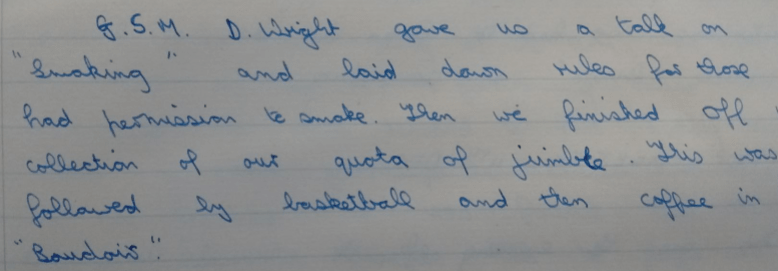 G.S.M. D. Wright gave us a talk on
"Smoking" and laid down rules for those
had permission to smoke. Then we finished off
collection of our quota of jumble. This was
followed by basketball and then coffee in
"Boudoir".